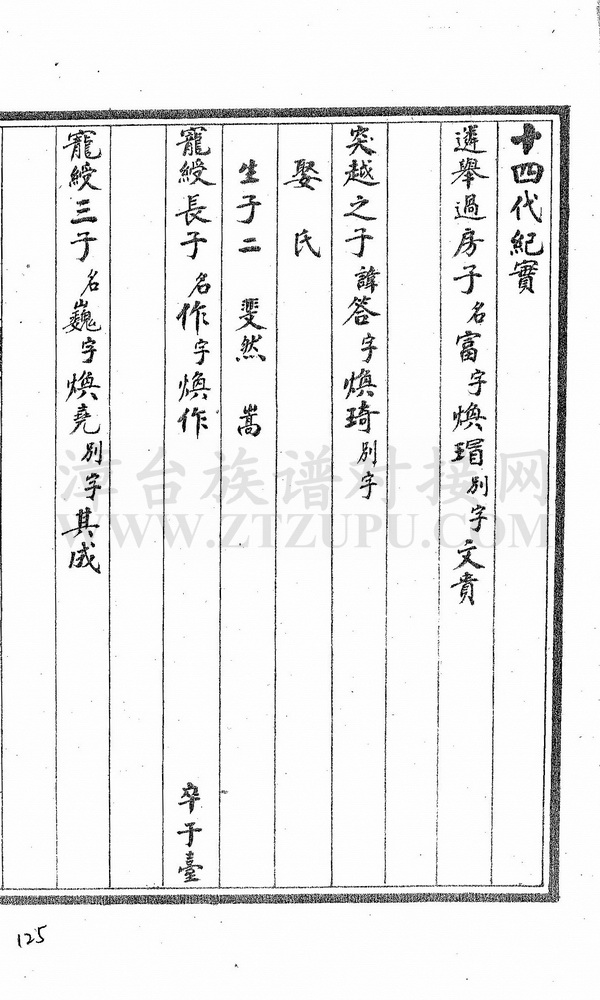 十四代紀實
遴舉過房子名富字煥瑁別字文貴
突越之子諱答字煥琦別字
娶氏
生子二 斐然 嵩
寵綬長子名作字煥作 卒于臺
寵綬三子名巍字煥堯別字其成
漳台族谱对接网
WWW.ZTZUPU.COM
125